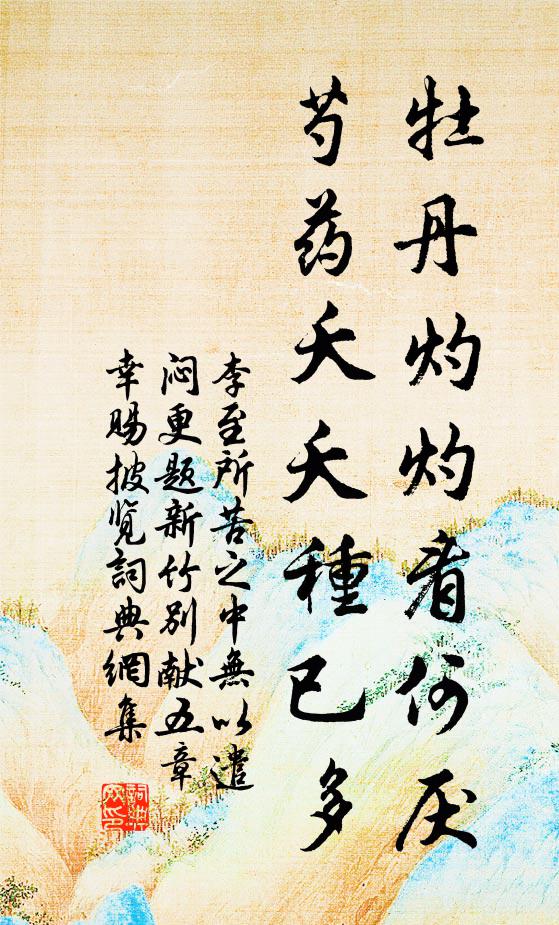 牡丹灼灼看何厌
芍药夭夭種已多
李至所苦之中無以遣
闷更题新竹别献五章
幸赐披览詞典網集